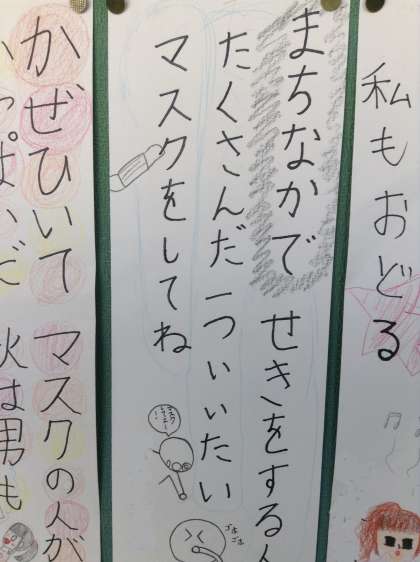 私もおどる
まちなかで せきをする人
たくさんだ 一ついいたい
マスクをしてね
ゴホ
ゴホ
かぜひいて マスクの人が
秋は男も